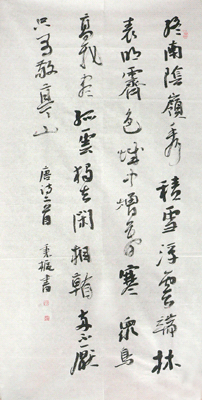 終南陰嶺秀積雪浮雲端林
表明霽色城中增暮寒眾鳥
高飛盡孤雲獨去閑相看兩不厭
只有敬亭山 唐诗二首 書